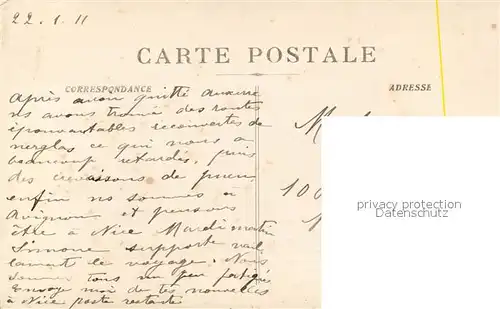 22.1.11
CARTE POSTALE
CORRESPONDANCE
ADRESSE
Après avoir quitté Auxerre
ns avons trouvé des routes
épouvantables recouvertes de
verglas ce qui nous a
beaucoup retardés, puis
des crevaisons de pneus
enfin ns sommes à
Avignon et pensons
être à Nice Mardi matin
Simone supporte vail
lamment le voyage. Nous
sommes tous un peu fatigués
Envoye moi de tes nouvelles
à Nice poste restante
100
privacy protection
Datenschutz